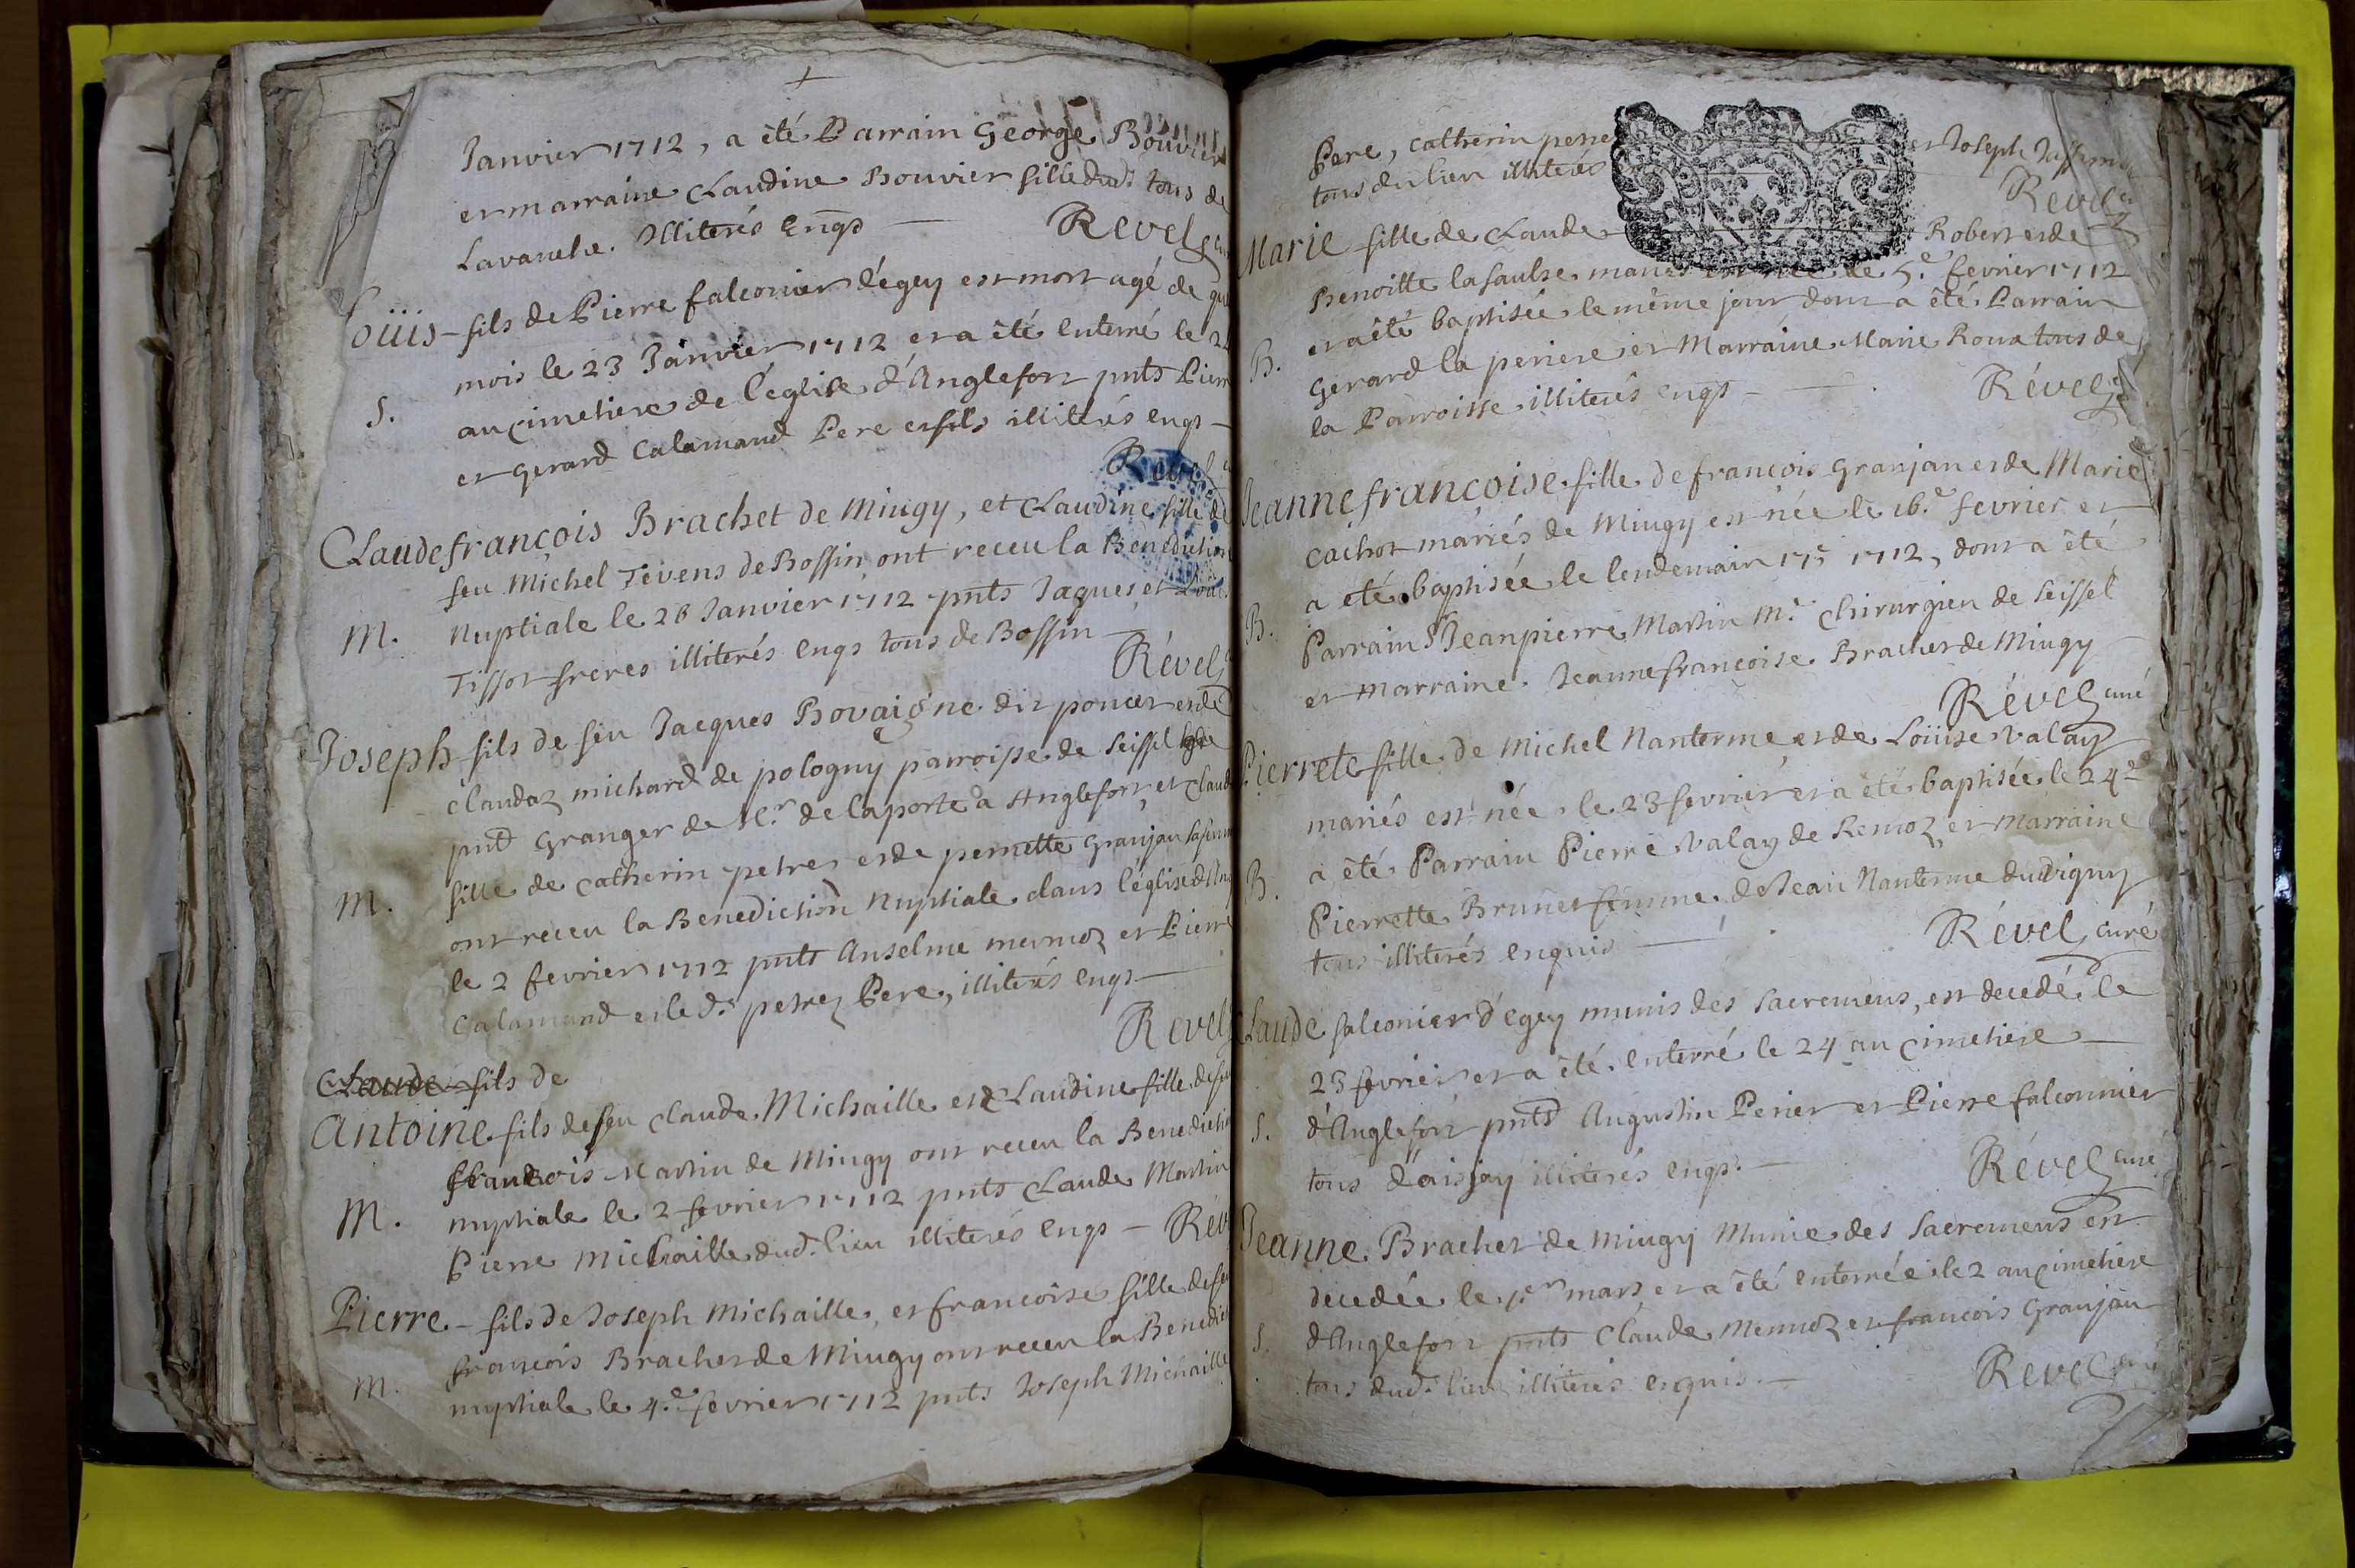 Janvier 1712, a été Parrain George Bouvier
et marraine Claudine Bouvier fille dud. tous de
Lavanche. Illiterés enqs Revel
Loüis fils de Pierre falconier d'égey est mort agé de
mois le 23 Janvier 1712 et a été enterré le
S. au cimetiere de l'église d'Anglefort pnts Pierre
et Gerard Calamand Pere et fils illiterés enqs
Revel
Claude françois Brachet de Miugy, et Claudine fille de
feu Michel Tevens de Bossin ont receu la Benediction
M. Nuptiale le 28 Janvier 1712 pnts Jaques et
Tissot freres illiterés enqs tous de Bossin
Revel
Joseph fils de feu Jacques Bovaigne dit poncet et de
claudaz michard de pologny parroisse de Seissel
pnt Granger de Mr. de laporte a Anglefort, et Claud
M. fille de Catherin petrez et de pernette Granjan sa femme
ont receu la Benediction Nuptiale dans l'église d'Ang
le 2 fevrier 1712 pnts Anselme mermoz et Pierre
Calamand et le d. petrez Pere, illiterés enqs
Revel
Claude fils de
Antoine fils de feu Claude Michaille et Claudine fille de feu
francois Martin de Miugy ont receu la Benediction
M. nuptiale le 2 fevrier 1712 pnts Claude Martin
Pierre Michaille dud. lieu illiterés enqs Rev
Pierre fils de Joseph Michaille, et francoise fille de feu
francois Brachet de Miugy ont receu la Benedict
M. nuptiale le 4.e fevrier 1712 pnts Joseph Michaille
Pere, Catherin petre et Joseph
tous du lieu illiterés Revel
Marie fille de Claude Robert et de
Benoitte lasaulse mariés est née le 5.e fevrier 1712
B. et a été baptisée le même jour dont a été Parrain
Gerard la periere et Marraine Marie Roux tous de
la Parroisse illiterés enqs Révél
Jeanne françoise fille de francois Granjan et de Marie
Cachot mariés de Miugy est née le 16.e fevrier et
a été baptisée le lendemain 17e 1712, dont a été
B. Parrain Sr Jean pierre Martin Mr. Chirurgien de Seissel
et Marraine Jeanne francoise Brachet de Miugy
Révél curé
Pierrete fille de Michel Nanterme et de Loüise valay
mariés est née le 23 fevrier et a été baptisée le 24
B. a été Parrain Pierre valay de Remoz et marraine
Pierrette Brunet femme de Jean Nanterme du vigny
tous illiterés enquis Révél curé
Claude falconier d'égey munis des Sacremens, est decedé le
23 fevrier et a été enterré le 24 au cimetiere
S. d'Anglefort pnts Augustin Perier et Pierre falconnier
tous d'aisjay illiterés enqs. Révél curé
Jeanne Brachet de Miugy Munie des Sacremens est
decedée le 1er mars et a été enterrée le 2 au cimetiere
S. d'Anglefort pnts Claude Mermoz et francois Granjan
tous dud. lieu illiterés enquis. Revel curé